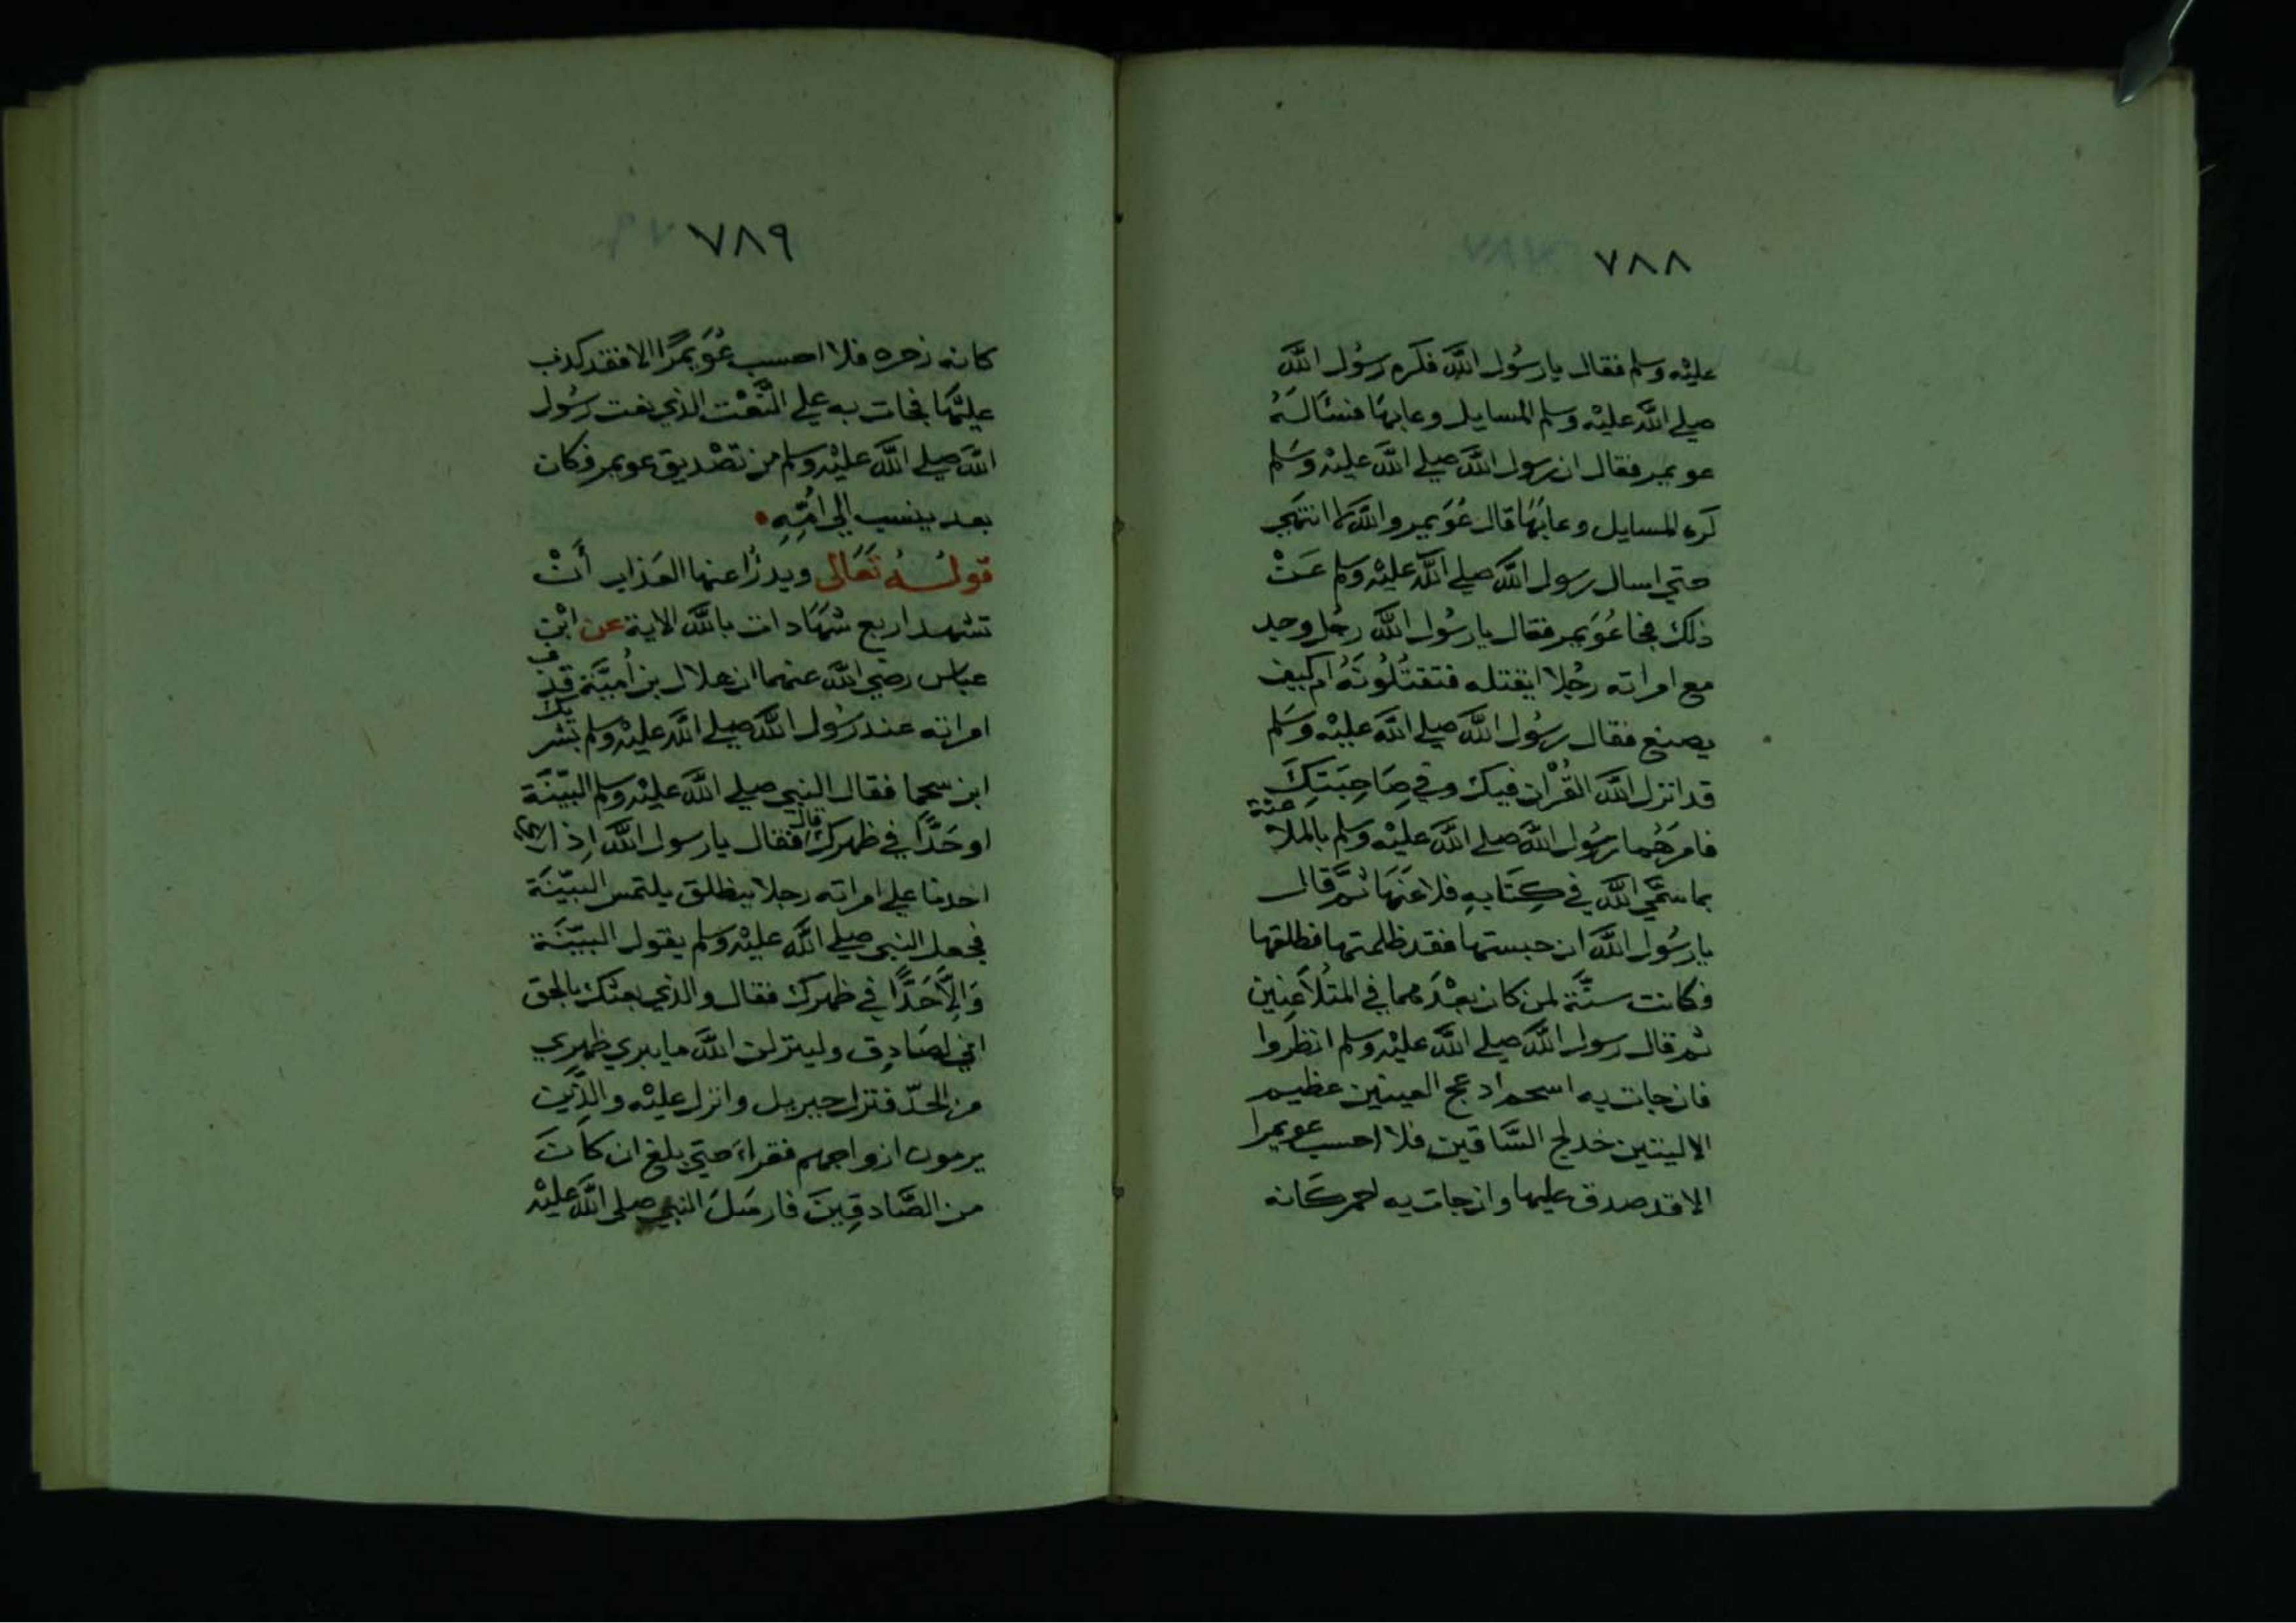 ٧٨٨
عليْه وسلم فقال يا رسُول اللَّه فكَره رسُول اللَّه
صلي اللَّه عليْه وسلم المسايل وعابهَا فسَالهُ
عويمر فقال ان رسول اللَّه صلي اللَّه عليْه وسَلم
كره المسايل وعابَهَا قال عُوَيمر واللَّه لا انتهي
حتي اسال رسول اللَّه صلي اللَّه عليْه وسلم عَنْ
ذلك فجا عُوَيمر فقال يا رسُول اللَّه رجُل وجد
مع امراته رجُلا ايقتله فتقتُلُونَهُ ام كيف
يصنع فقال رسُول اللَّه صلي اللَّه عليْه وسَلم
قد انزل اللَّه القُرْان فيك وفي صَاحِبَتِكَ
فامرَهُما رسُول اللَّه صلي اللَّه عليْه وسلم بالملاعنة
بما سَمَّي اللَّه في كِتَابِهِ فلاعَنَهَا ثمَّ قال
يا رسُول اللَّه ان حبستها فقد ظلمتها فطلقها
فكانت سنَّة لمن كان بعْدَهما في المتُلاَعِنِين
ثم قال رسول اللَّه صلي اللَّه عليْه وسلم انظرُوا
فان جات به اسحم ادعج العينين عظيم
الاليتين خدلج السَّاقين فلا احسب عويمرا
الا قد صدق عليها وان جات به احمر كَانه
٧٨٩
كانه زحره فلا احسب عُوَيمرًا الا فقد كذب
عليْهَا فجات به علي النَّعْت الذي نعت رسُول
اللَّه صلي اللَّه عليْه وسلم من تصْديق عويمر فكان
بعد ينسب الي امِّهِ
قولهُ تَعَالى ويدرُا عنها العَذاب أنْ
تشهد اربع شهَادات باللَّه الاية عن ابْن
عباس رضي اللَّه عنهما ان هلال بن أميَّة قذف
امراته عند رسُول اللَّه صلي اللَّه عليْه وسلم بشريك
ابن سحما فقال النبي صلي اللَّه عليْه وسلم البيّنَة
او حَدًّا في ظهرك قال فقال يا رسول اللَّه اِذا راي
احدنا علي امراته رجلا ينطلق يلتمس البيّنَة
فجعل النبي صلي اللَّه عليْه وسلم يقول البيّنَة
وَاِلاَّ حَدًّا في ظهرك فقال والذي بعثك بالحق
اني لصَادِق ولينزلن اللَّه ما يبري ظهِري
من الحدّ فنزل جبريل وانزل عليْه والذِّين
يرمون ازواجهم فقراء حتي بلغ ان كانَ
من الصَّادقِينَ فارسَلَ النبي صلي اللَّه عليْه